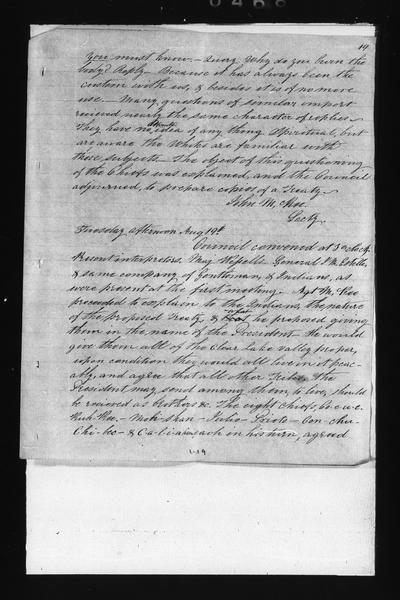 19
You must know. - Query Why do you burn the
body? Reply - Because it has always been the
custom with us, & besides it is of no more
use. - Many questions of similar import
recieved nearly the same character of replies.
They have no distinct idea of any thing Spiritual, but
are aware the Whites are familiar with
these subjects. The object of this questioning
of the Chiefs was explained, and the Council
adjourned, to prepare copies of a Treaty.
John McKee.
Secty.
Tuesday afternoon Aug 19th
Council convened at 3 o'clock
Present interpreters, General J. M. Estelle,
& same company of Gentlemen, & Indians, as
were present at the first meeting. Agt McKee
proceeded to explain to the Indians, the nature
of the proposed Treaty, & what he proposed giving
them in the name of the President. He would
give them all of the Clear Lake Valley proper,
upon condition they would all live in it peac-
ably, and agree that all other Tribes, the
President may send among them, to live, should
be recieved as brothers &c. The eight chiefs,
Julio - Prieto - Con-chu -
Chi-bec - & Ca-li-a- each in his turn, agreed
1-19